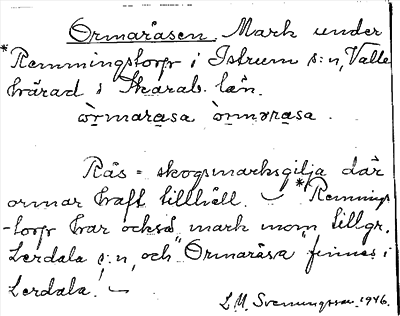 Ormaråsen. Mark under
*Remmingstorp i Istrum s:n, Valle
härad i Skarab. län.
òrmarasa òrmərasa.
Rås = skogsmarksgilja där
ormar haft tillhåll. – *Remmings
-torp har också mark inom tillgr.
Lerdala s:n, och "Ormaråsa" finnes i
Lerdala! –
L.M. Svenungsson 1946.